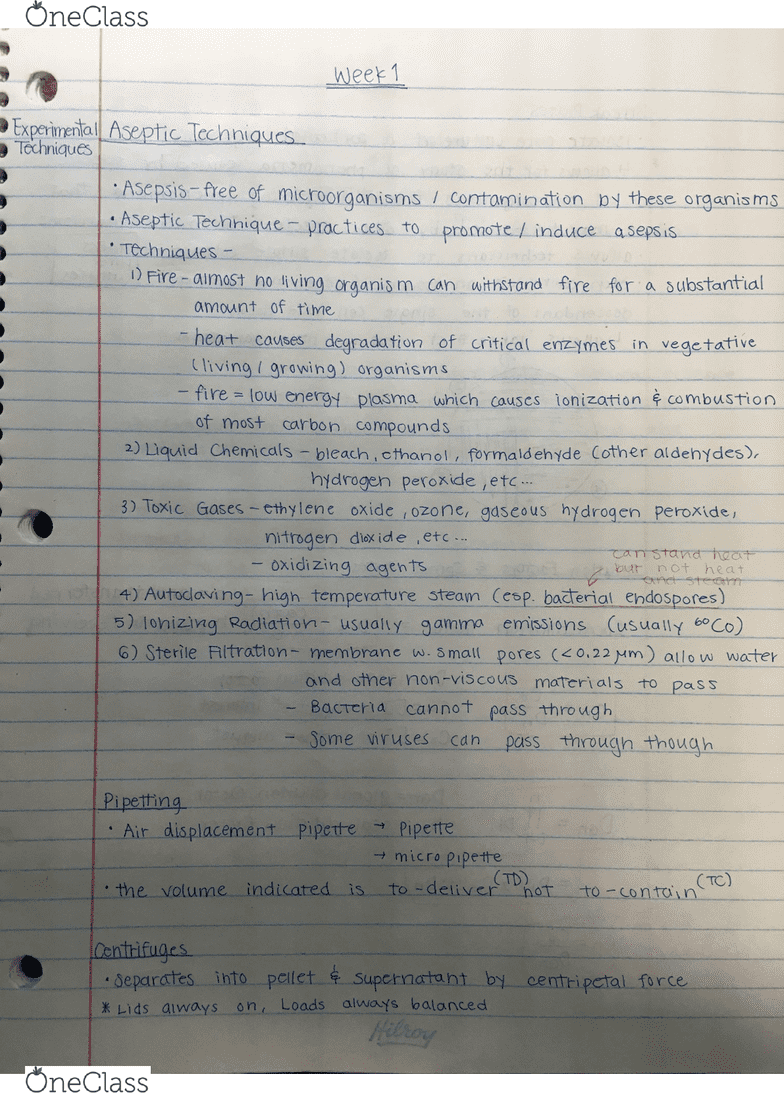 OneClass
Week 1
Experimental Techniques
Aseptic Techniques
• Asepsis - free of microorganisms / contamination by these organisms
• Aseptic Technique - practices to promote / induce asepsis
• Techniques -
1) Fire - almost no living organism can withstand fire for a substantial
amount of time
- heat causes degradation of critical enzymes in vegetative
(living / growing) organisms
- fire = low energy plasma which causes ionization & combustion
of most carbon compounds
2) Liquid Chemicals - bleach, ethanol, formaldehyde (other aldehydes),
hydrogen peroxide, etc...
3) Toxic Gases - ethylene oxide, ozone, gaseous hydrogen peroxide,
nitrogen dioxide, etc...
- oxidizing agents
can stand heat
but not heat
and steam
4) Autoclaving - high temperature steam (esp. bacterial endospores)
5) Ionizing Radiation - usually gamma emissions (usually ⁶⁰Co)
6) Sterile Filtration - membrane w. small pores (<0.22 µm) allow water
and other non-viscous materials to pass
- Bacteria cannot pass through
- Some viruses can pass through though
Pipetting
• Air displacement pipette → Pipette
→ micropipette
• the volume indicated is to-deliver (TD) not to-contain (TC)
Centrifuges
• Separates into pellet & supernatant by centripetal force
* Lids always on, Loads always balanced
Hilroy
OneClass